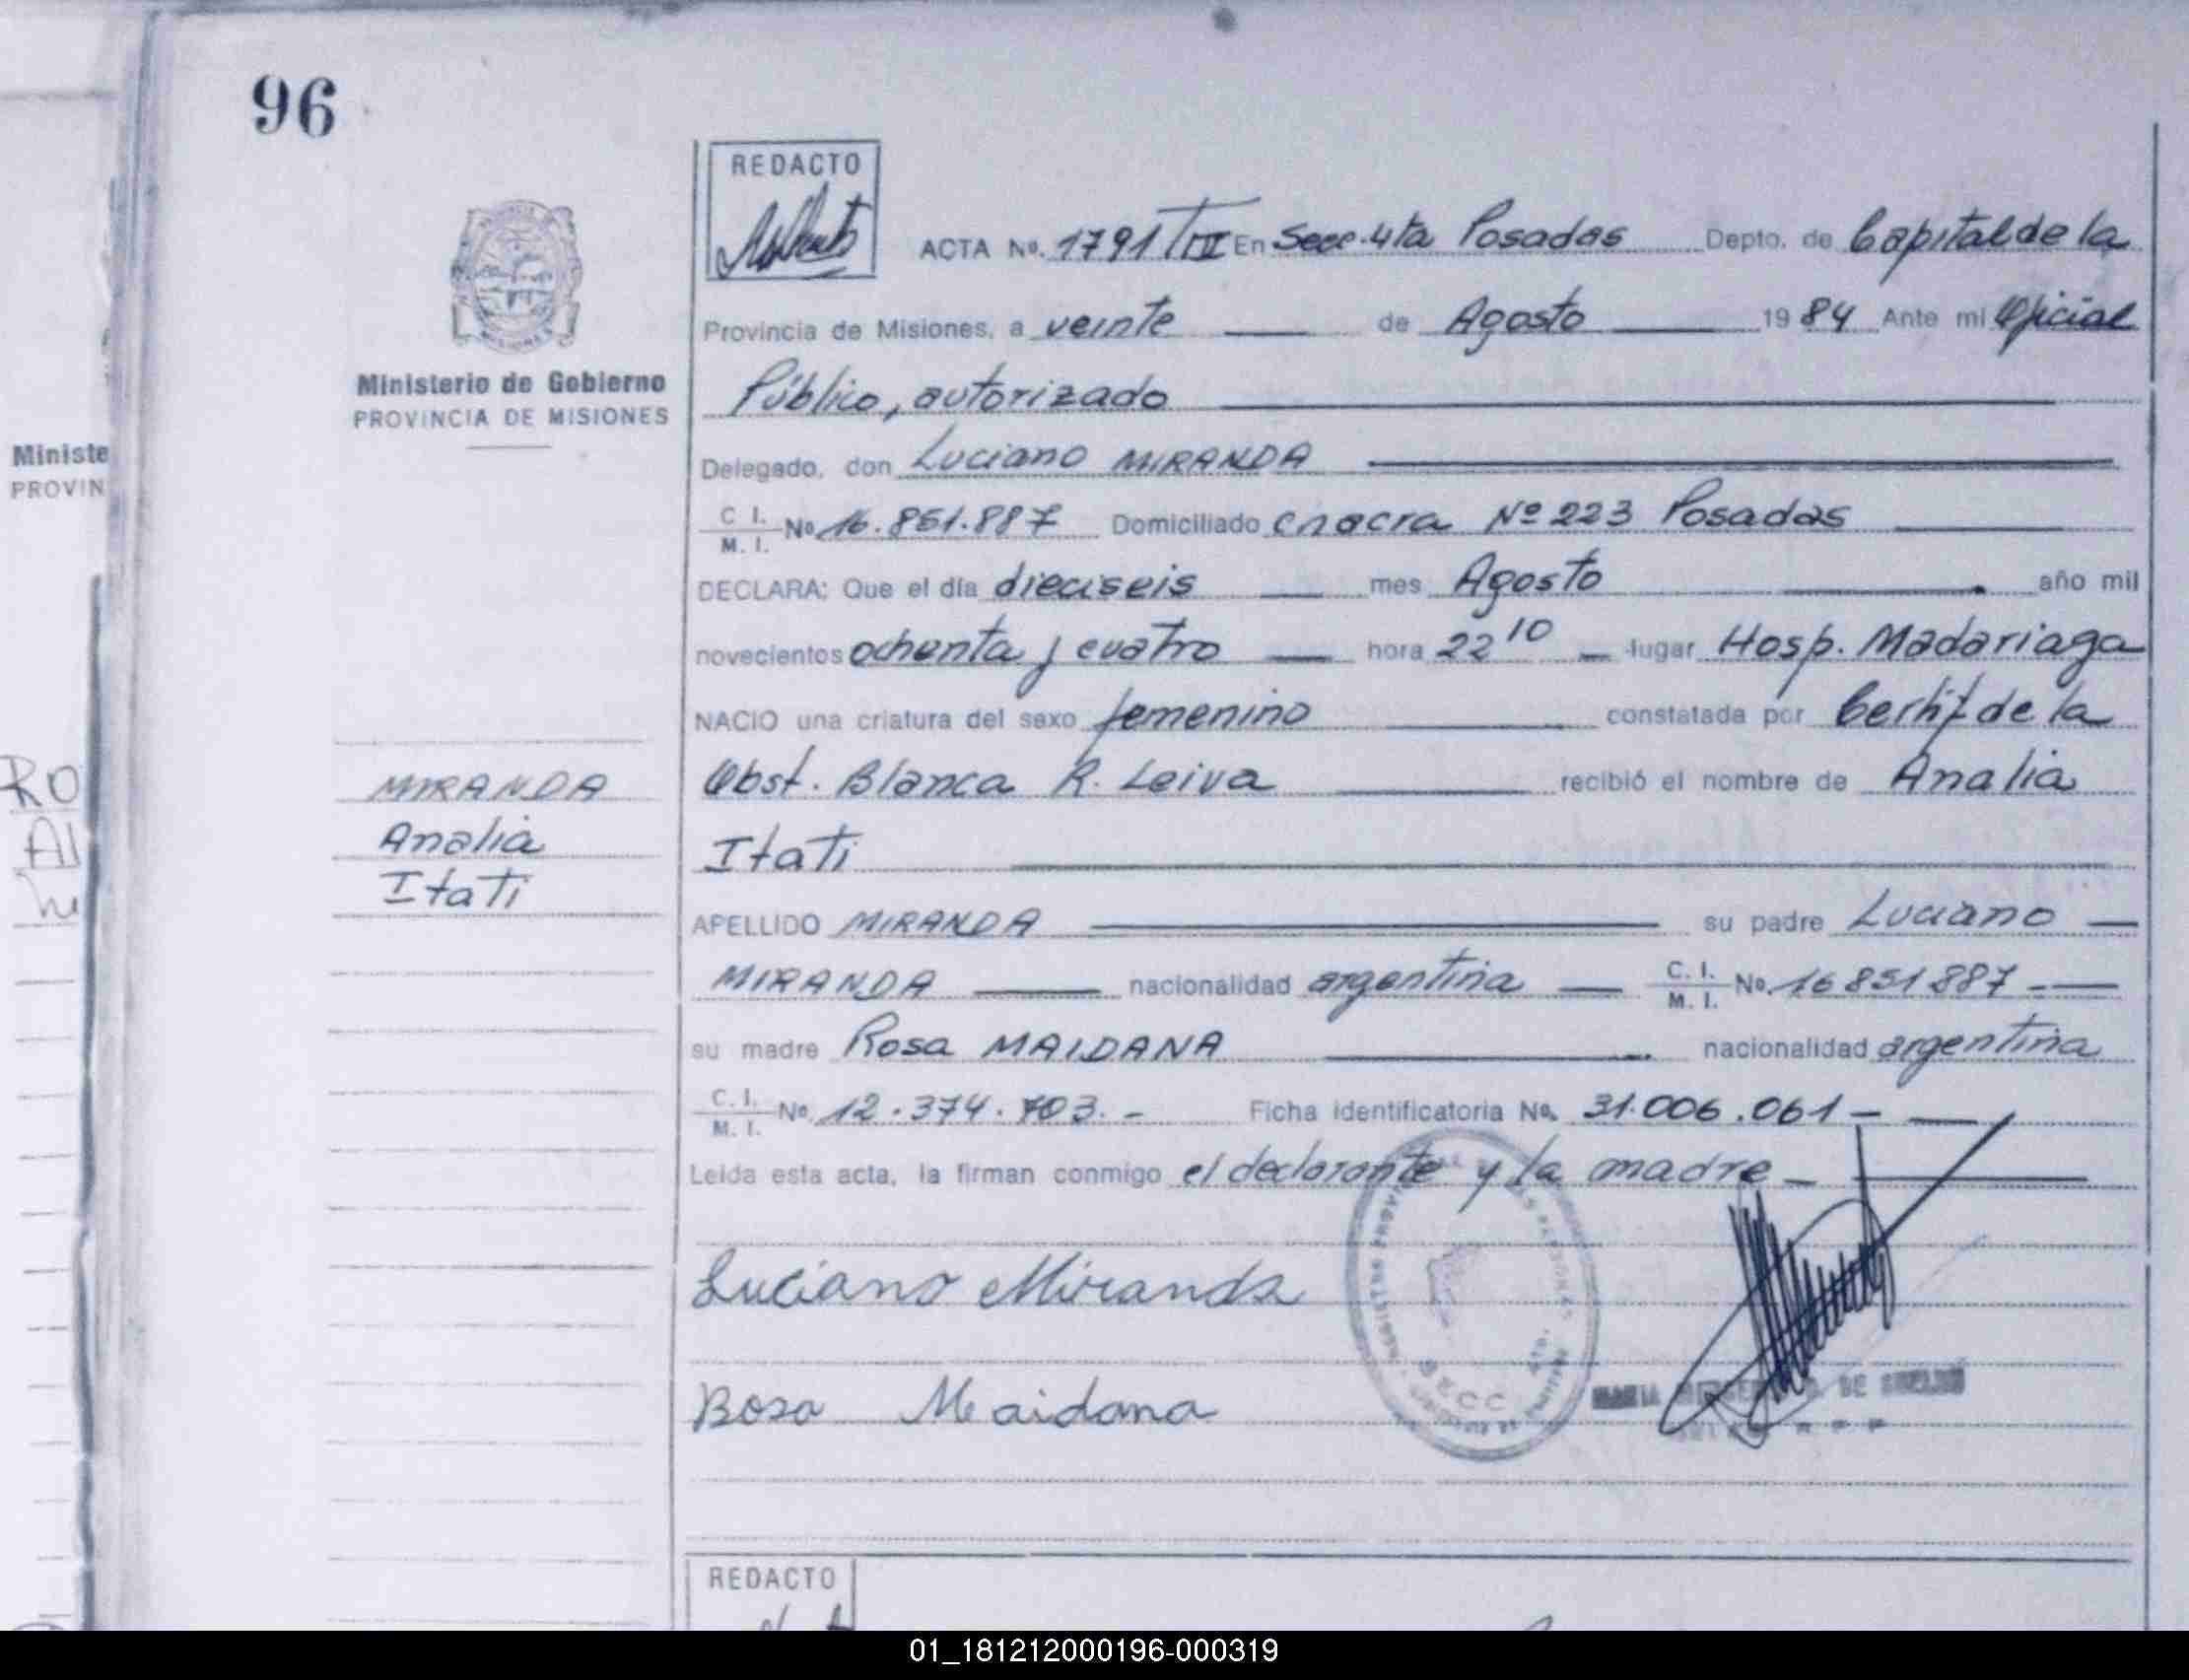 96
REDACTO
ACTA No. 1791 TIII En Secc. 4ta Posadas Depto. de Capital de la
Provincia de Misiones, a veinte de Agosto 1984 Ante mi Oficial
Público, autorizado
Ministerio de Gobierno
PROVINCIA DE MISIONES
Delegado, don Luciano MIRANDA
C. I. M. I. No 16.851.887 Domiciliado chacra Nº 223 Posadas
DECLARA: Que el día dieciseis mes Agosto año mil
novecientos ochenta y cuatro hora 22 10 lugar Hosp. Madariaga
NACIO una criatura del sexo femenino constatada por Certif de la
Obst. Blanca R. Leiva recibió el nombre de Analia
Itati
MIRANDA
Analia
Itati
APELLIDO MIRANDA su padre Luciano
MIRANDA nacionalidad argentina C. I. M. I. No. 16851887
su madre Rosa MAIDANA nacionalidad argentina
C. I. M. I. No 12.374.703.- Ficha identificatoria No. 31.006.061-
Leída esta acta, la firman conmigo el declarante y la madre -
Luciano Miranda
Rosa Maidana
SECC 4TA.
REDACTO
Ministe
PROVIN
RO
Al
01_181212000196-000319